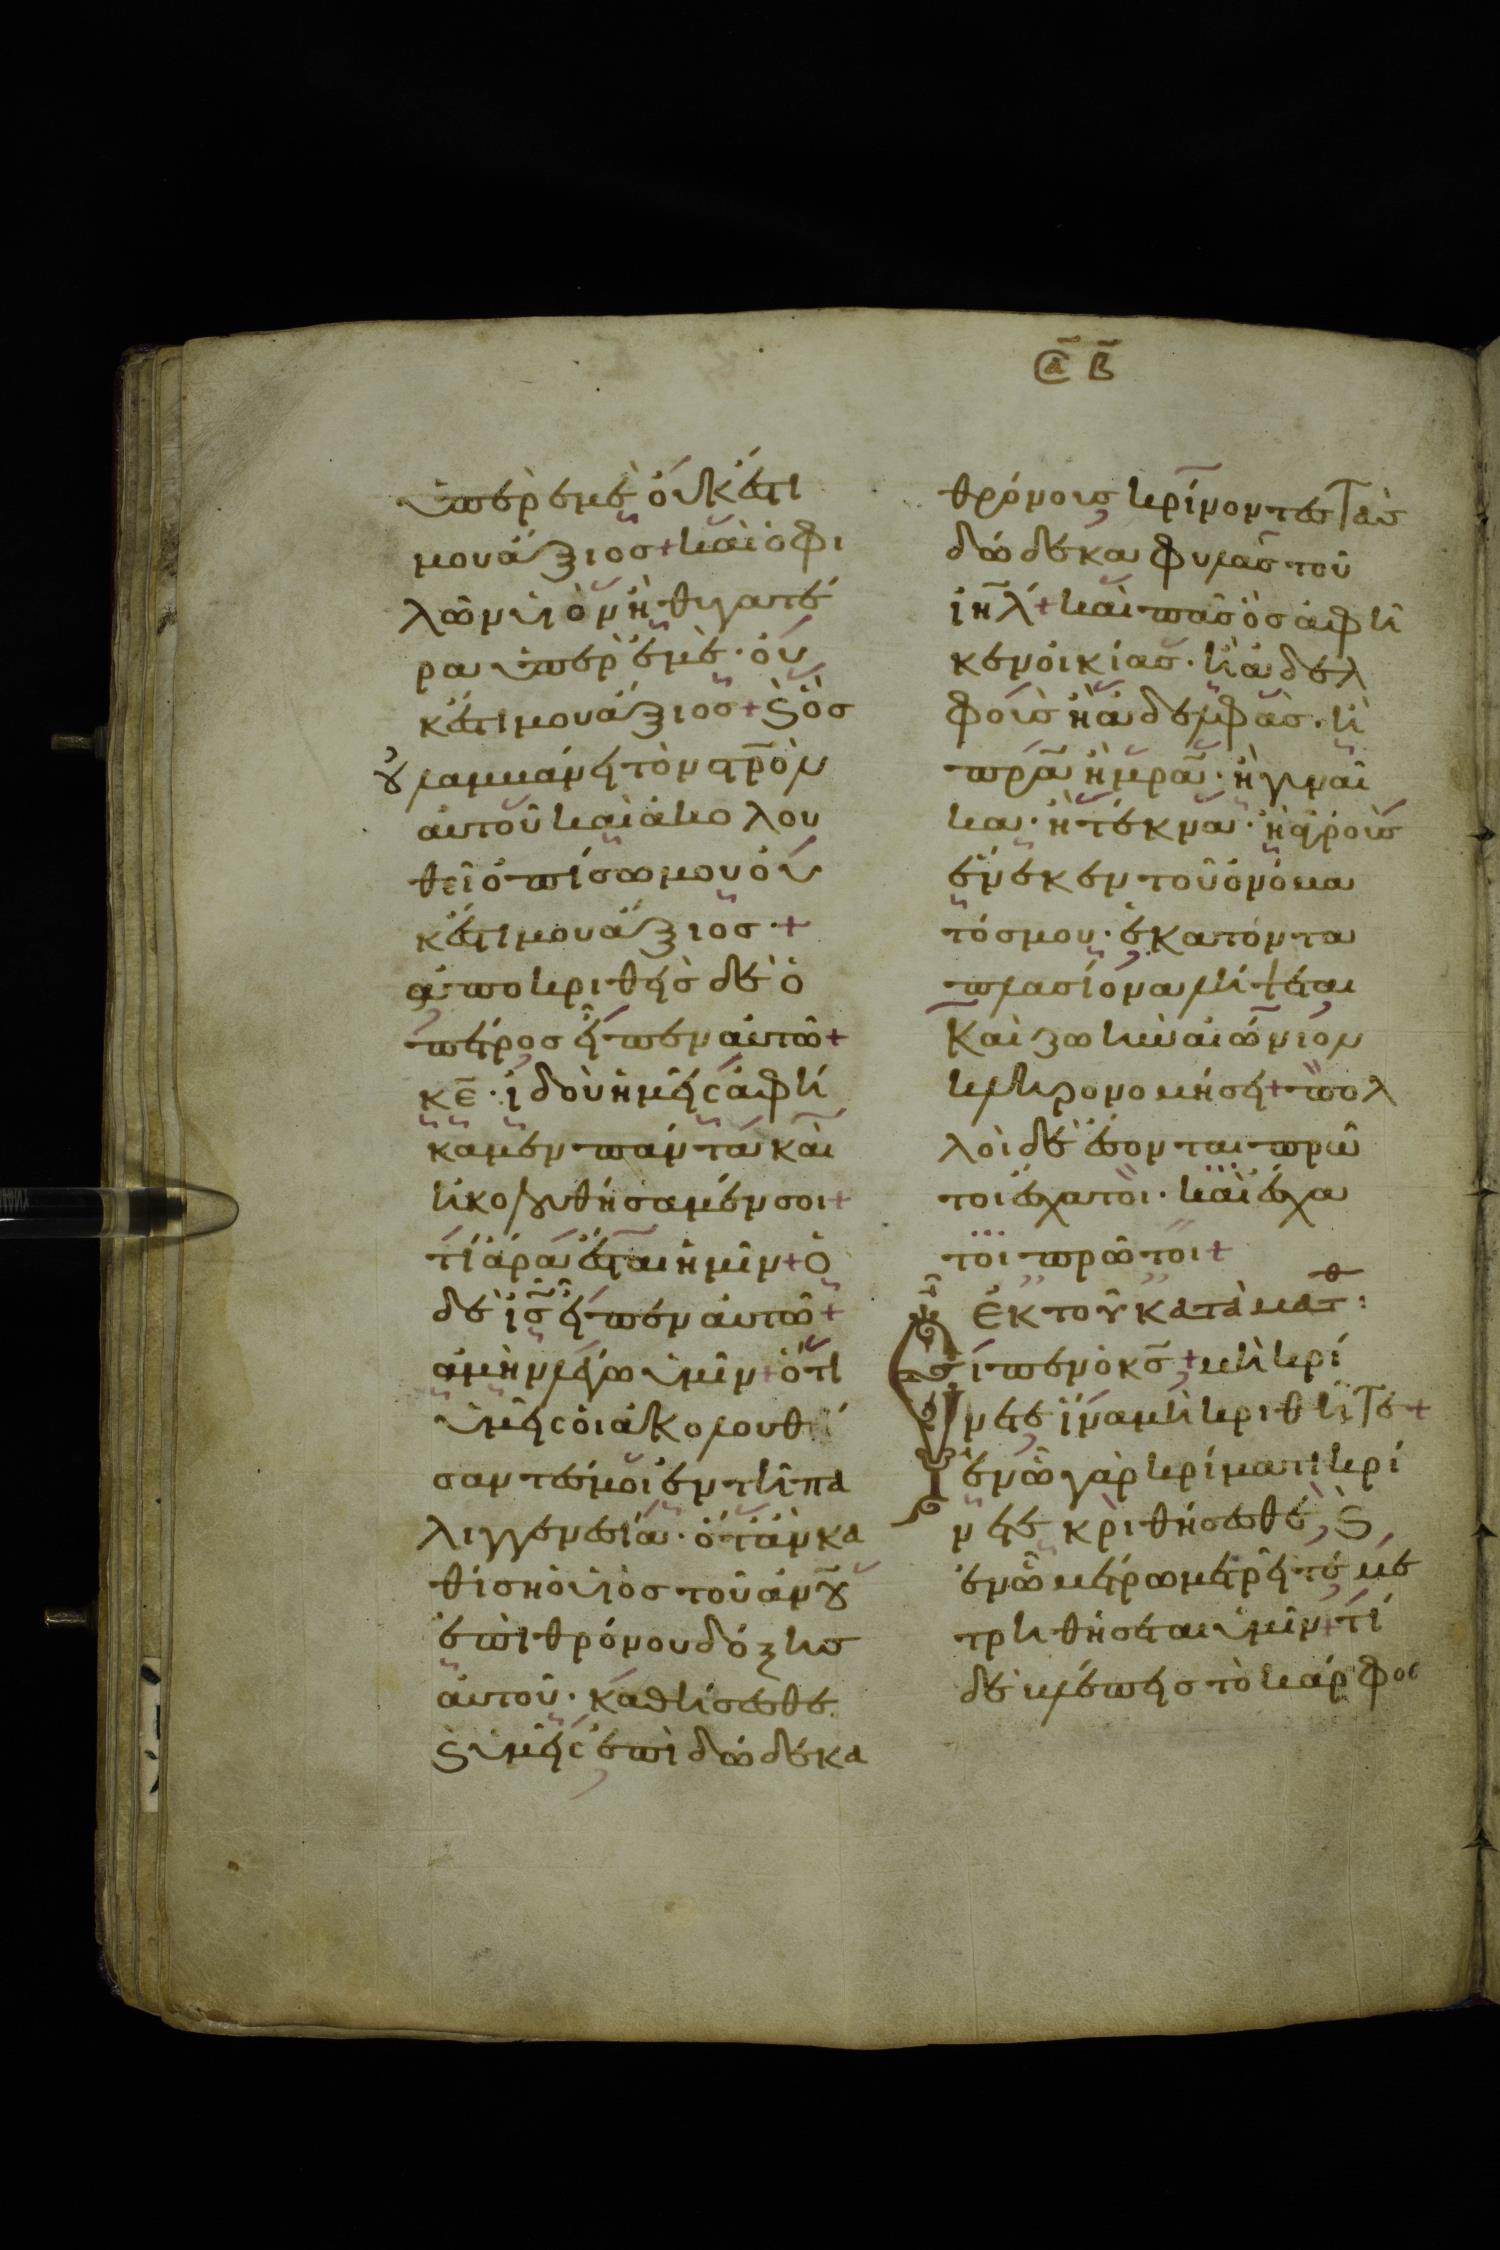 Σα Β
ὑπὲρ ἐμὲ οὐκ ἔστι
μου ἄξιος + καὶ ὁ φι
λῶν υἱὸν ἢ θυγατέ
ρα ὑπὲρ ἐμὲ · οὐ
κ ἔστι μου ἄξιος + ϗ ὃς
οὐ λαμβάνει τὸν στρον
αὐτοῦ καὶ ἀκολου
θεῖ ὀπίσω μου οὐ
κ ἔστι μου ἄξιος · +
ἀποκριθεὶς δὲ ὁ
πέτρος εἶπεν αὐτῶ +
κε · ἰδοὺ ἡμεῖς ἀφή
καμεν πάντα καὶ
ἠκολουθήσαμέν σοι +
τί ἄρα ἔσται ἡμῖν + ὁ
δὲ ις εἶπεν αὐτῶ +
ἀμὴν λέγω ὑμῖν + ὅτι
ὑμεῖς οἱ ἀκολουθή
σαντές μοι ἐν τῆ πα
λιγγενεσία · ὅταν κα
θίση ὁ υἱὸς τοῦ ανου
ἐπὶ θρόνου δόξης
αὐτοῦ · καθήσεσθε
ϗ ὑμεῖς ἐπὶ δώδεκα
θρόνοις κρίνοντες τὰς
δώδεκα φυλὰς τοῦ
ιηλ + καὶ πᾶς ὃς ἀφῆ
κεν οἰκίας · ἢ ἀδελ
φοὺς ἢ ἀδελφὰς · ἢ
πρα ἢ μρα · ἢ γυναῖ
κα · ἢ τέκνα · ἢ ἀγροὺς
ἕνεκεν τοῦ ὀνόμα
τός μου · ἑκατοντα
πλασίονα λήψεται
καὶ ζωὴν αἰώνιον
κληρονομήσει + πολ
λοὶ δὲ ἔσονται πρῶ
τοι ἔσχατοι · καὶ ἔσχα
τοι πρῶτοι +
ἐκ τοῦ κατὰ ματθ :
Εἶπεν ὁ κς + μὴ κρί
νετε ἵνα μὴ κριθῆτε +
ἐν ὧ γὰρ κρίματι κρί
νετε κριθήσεσθε, ϗ
ἐν ὧ μέτρω μετρεῖτε με
τρηθήσεται ὑμῖν + τί
δὲ βλέπεις τὸ κάρφος